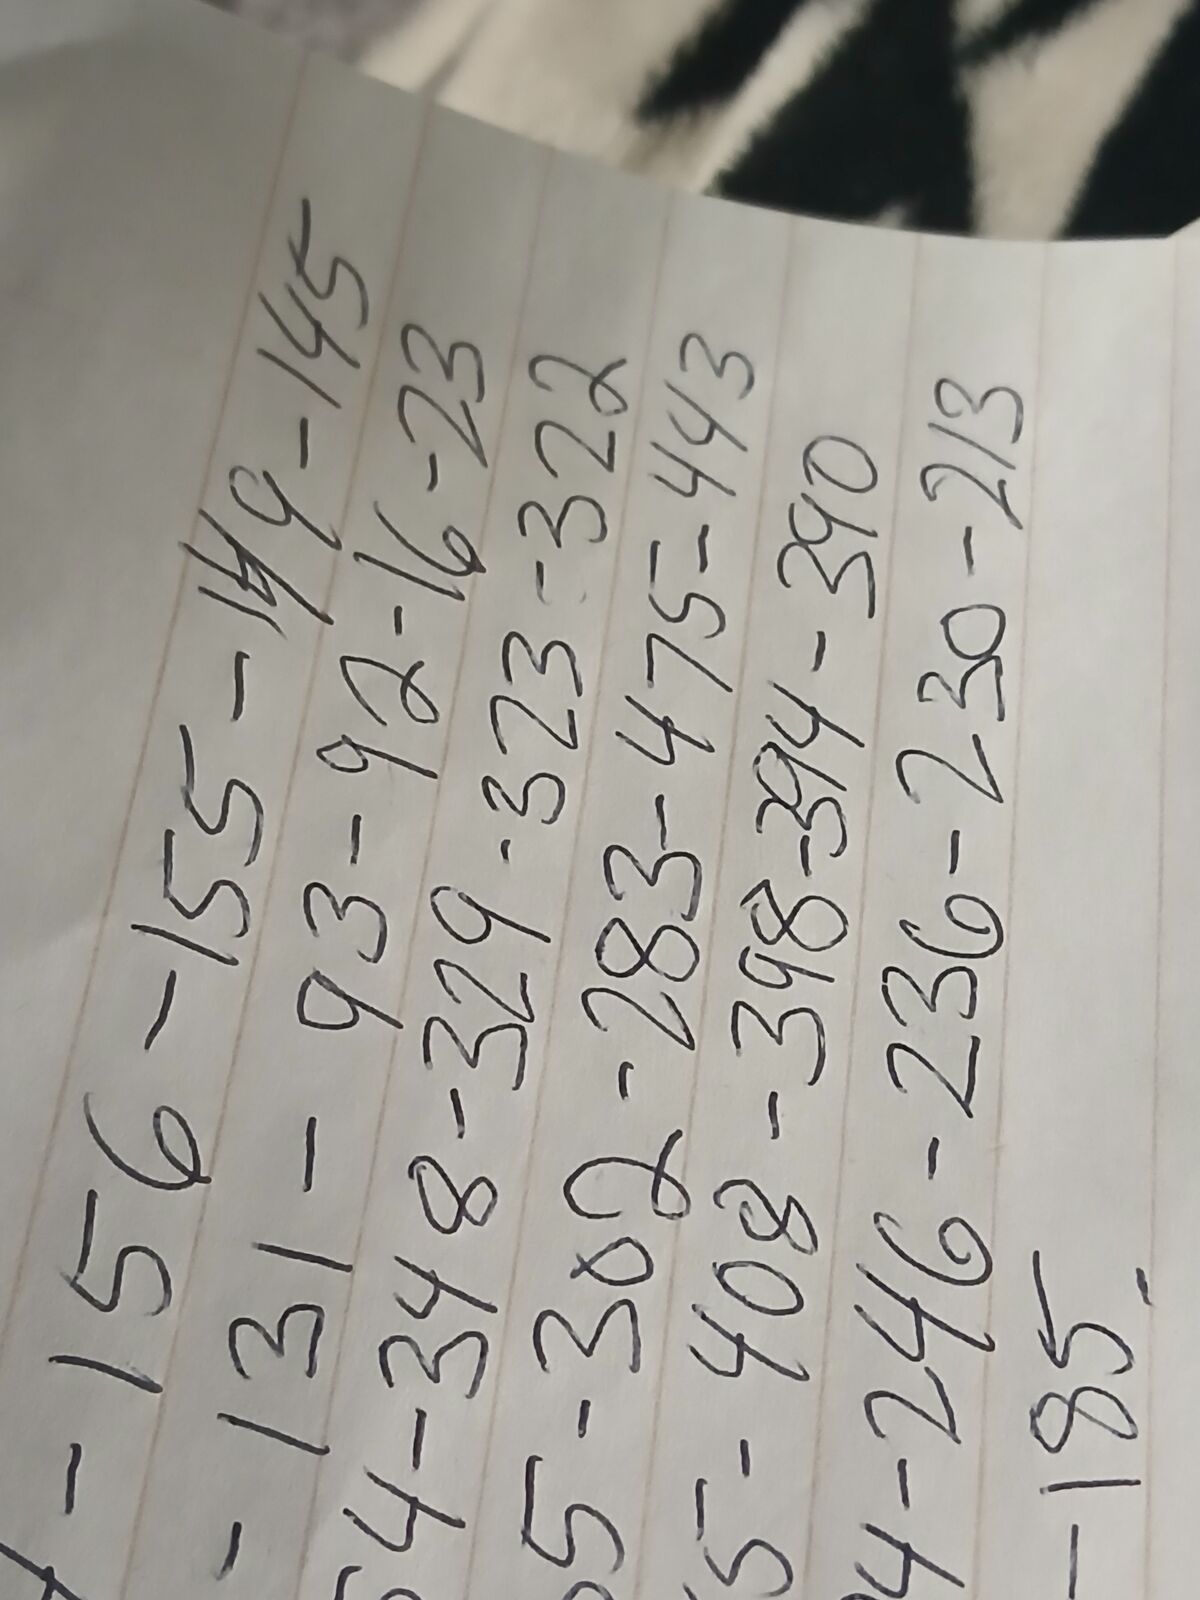 - 156 - 155 - 149 - 145
- 131 - 93 - 92 - 16 - 23
54 - 348 - 329 - 323 - 322
55 - 382 - 283 - 475 - 443
5 - 408 - 398 - 394 - 390
4 - 246 - 236 - 230 - 213
- 185 -